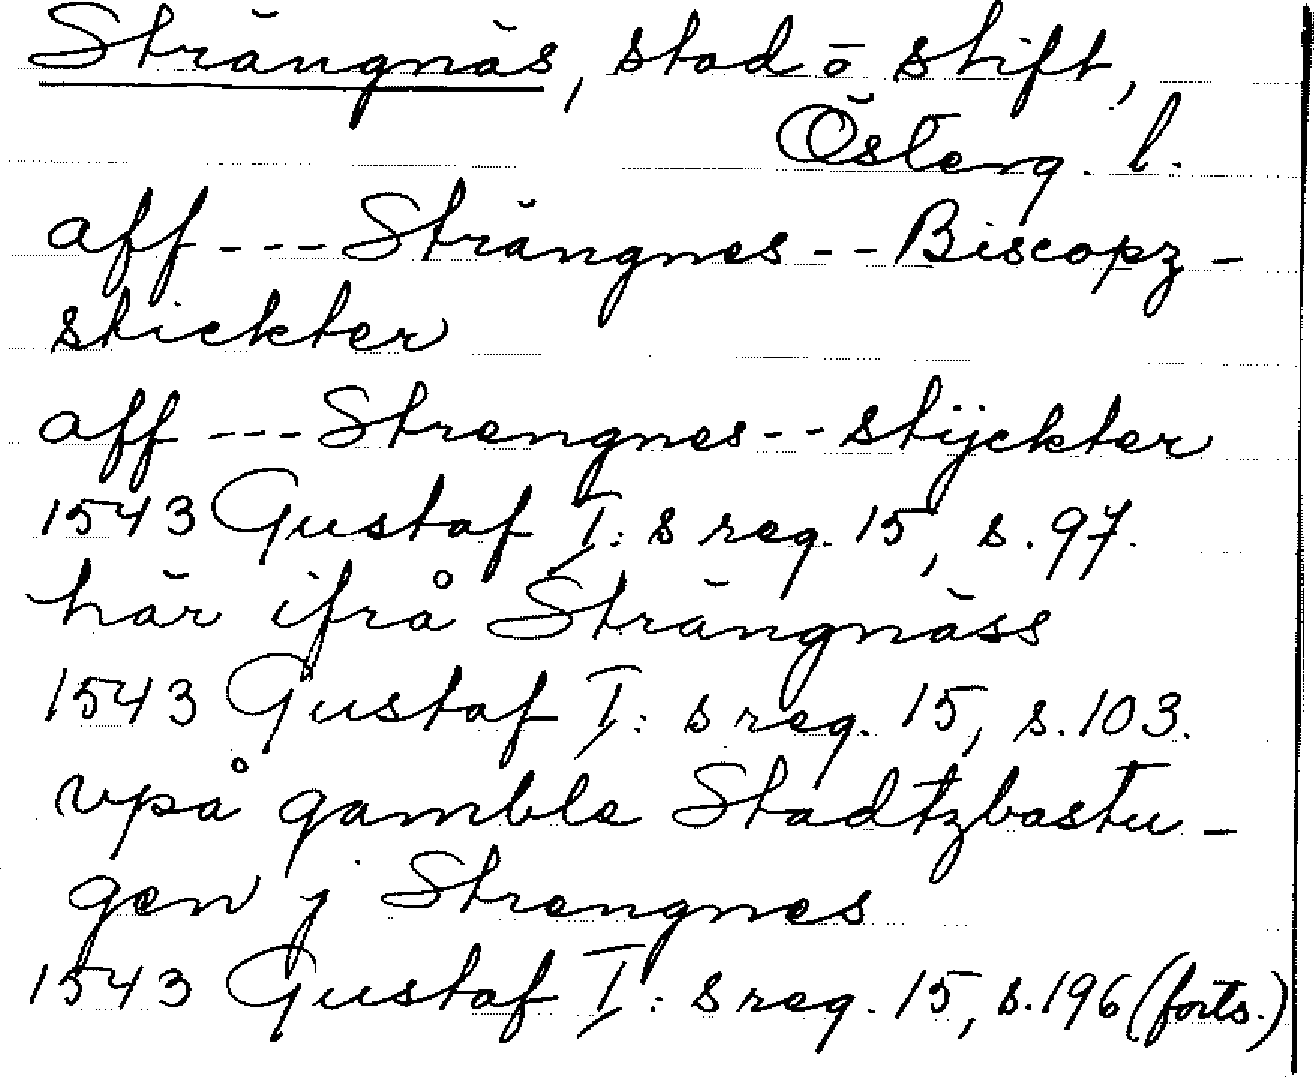 Strängnäs, stad o stift,
Österg. l.
aff --- Strängnes -- Biscopz-
stickter
aff --- Strengnes -- stÿckter
1543 Gustaf I:s reg. 15, s. 97.
här ifrå Strängnäss
1543 Gustaf I:s reg. 15, s. 103.
vpå gamble Stadtzbastu-
gen j Strengnes
1543 Gustaf I:s reg. 15, s. 196 (forts.)